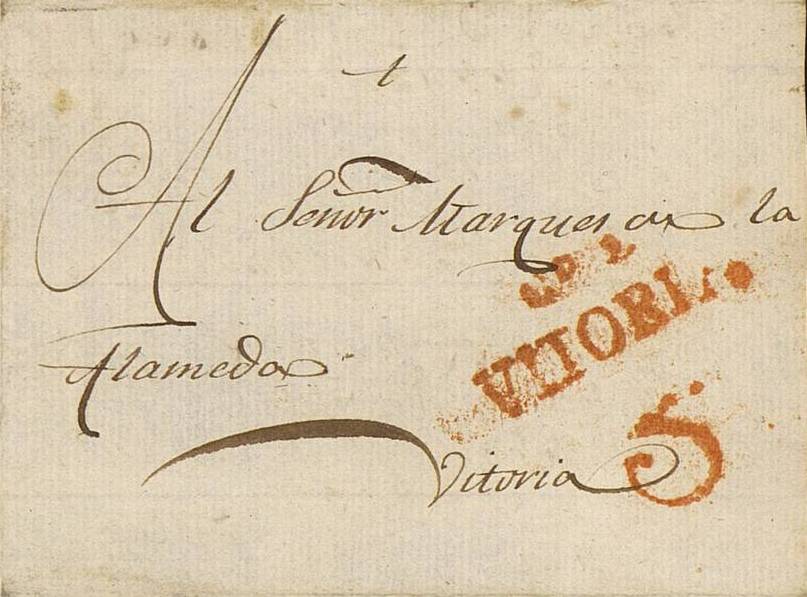 +
Al Señor Marques de la
Alameda
VITORI.
Vitoria
5